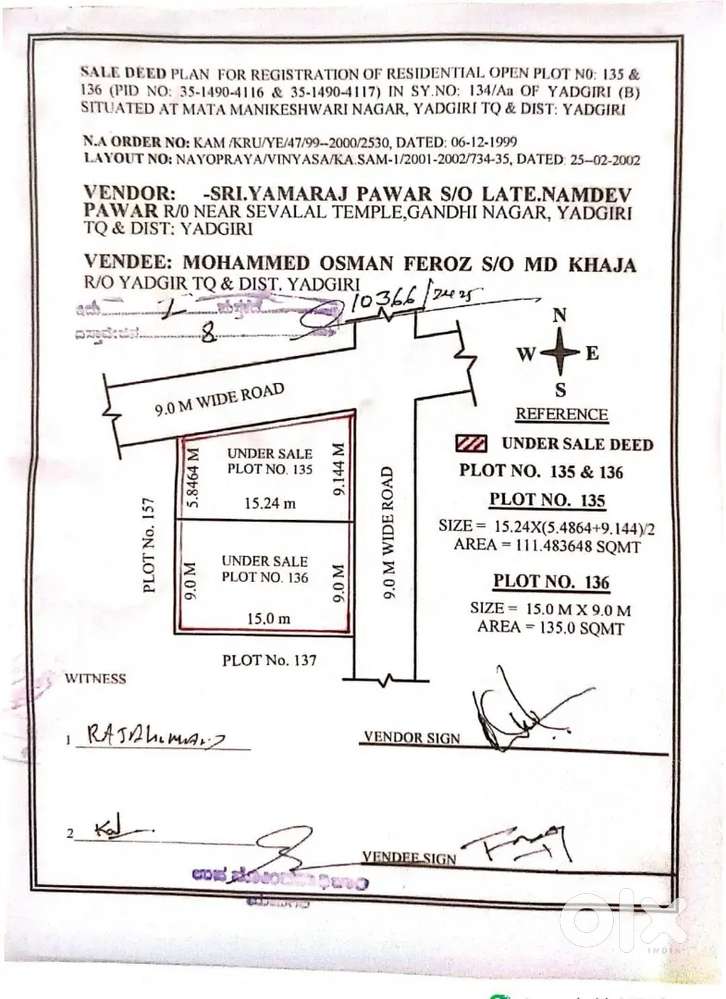 SALE DEED PLAN FOR REGISTRATION OF RESIDENTIAL OPEN PLOT N0: 135 &
136 (PID NO: 35-1490-4116 & 35-1490-4117) IN SY.NO: 134/Aa OF YADGIRI (B)
SITUATED AT MATA MANIKESHWARI NAGAR, YADGIRI TQ & DIST: YADGIRI
N.A ORDER NO: KAM /KRU/YE/47/99--2000/2530, DATED: 06-12-1999
LAYOUT NO: NAYOPRAYA/VINYASA/KA.SAM-1/2001-2002/734-35, DATED: 25--02-2002
VENDOR: -SRI.YAMARAJ PAWAR S/O LATE.NAMDEV
PAWAR R/0 NEAR SEVALAL TEMPLE,GANDHI NAGAR, YADGIRI
TQ & DIST: YADGIRI
VENDEE: MOHAMMED OSMAN FEROZ S/O MD KHAJA
R/O YADGIR TQ & DIST. YADGIRI
10366/2425
8
N
W E
S
9.0 M WIDE ROAD
REFERENCE
UNDER SALE DEED
PLOT NO. 135 & 136
UNDER SALE
PLOT NO. 135
5.8464 M
9.144 M
15.24 m
PLOT NO. 135
SIZE = 15.24X(5.4864+9.144)/2
AREA = 111.483648 SQMT
PLOT No. 157
9.0 M WIDE ROAD
UNDER SALE
PLOT NO. 136
9.0 M
9.0 M
15.0 m
PLOT NO. 136
SIZE = 15.0 M X 9.0 M
AREA = 135.0 SQMT
PLOT No. 137
WITNESS
1
VENDOR SIGN
2
VENDEE SIGN
olx
INDIA